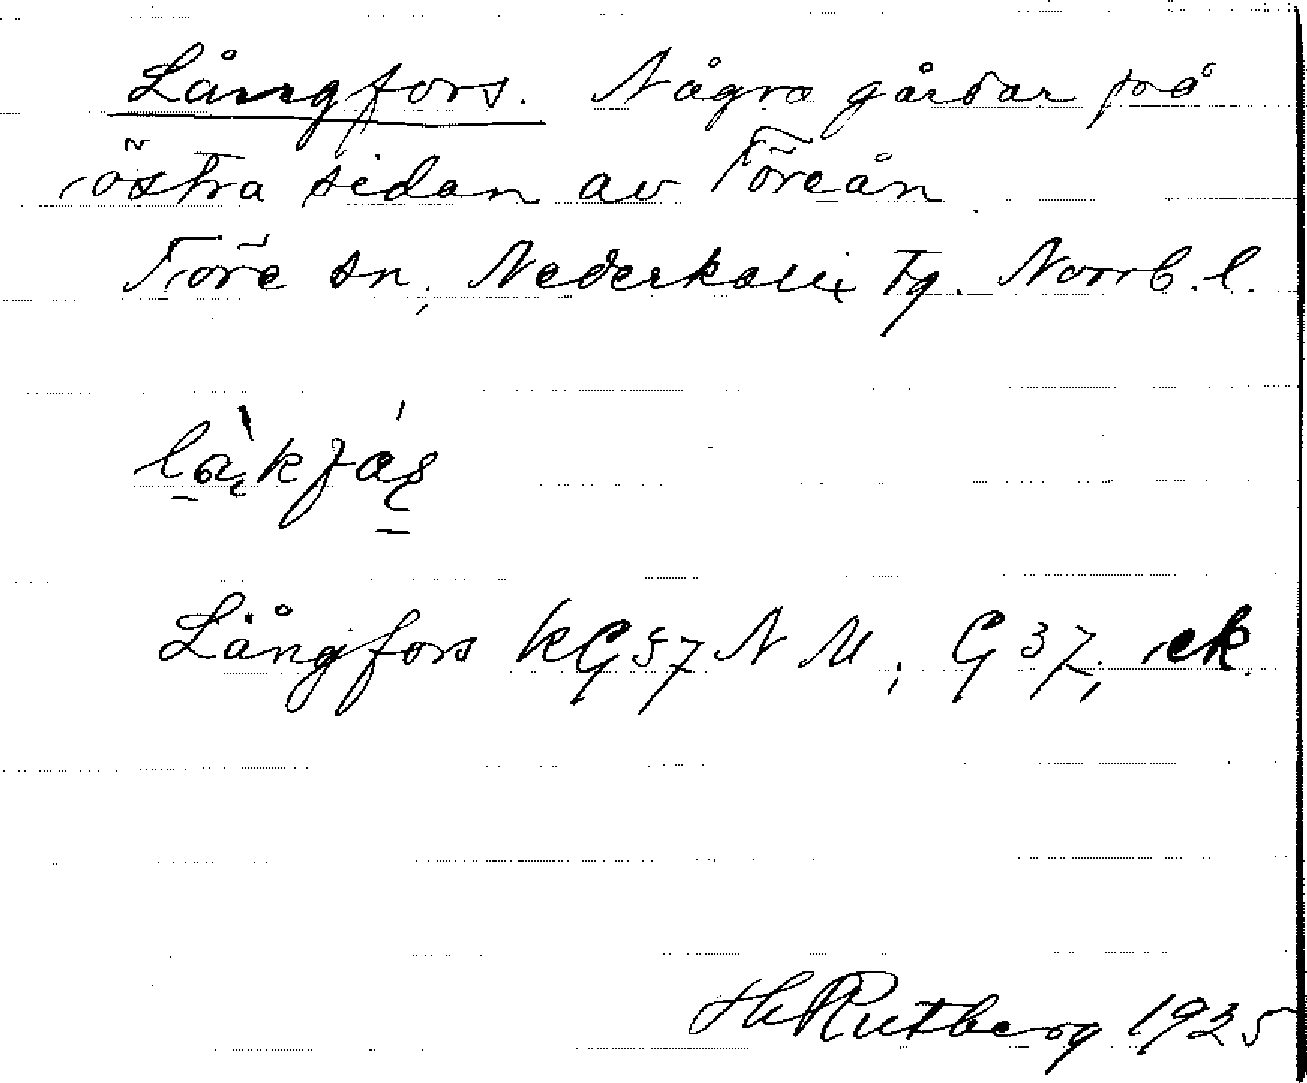 Långfors. Några gårdar på
östra sidan av Töreån
Töre sn, Nederkalix Tg. Norrb. l.
Långfors KG57NM; G37, ek
H Rutberg 1925